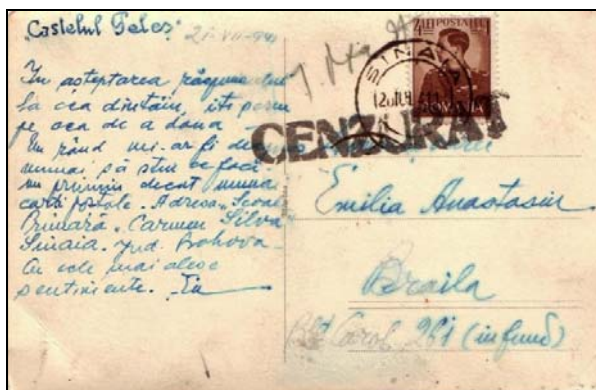 "Castelul Peleș"
21-VII-941
În așteptarea răspunsului
la cea dintâiu, iți
pe cea de a doua
Un rând mi-ar fi de
numai să știu ce faci.
nu primim decat numai
carti postale. Adresa, Școala
Primară "Carmen Silva"
Sinaia. Jud. Prahova
Cu cele mai alese
sentimente.
4 LEI POSTA LEI
SINAIA
ROMANIA
CENZURAT
Emilia Anastasiu
Braila
Bld Carol 261 (in fund)